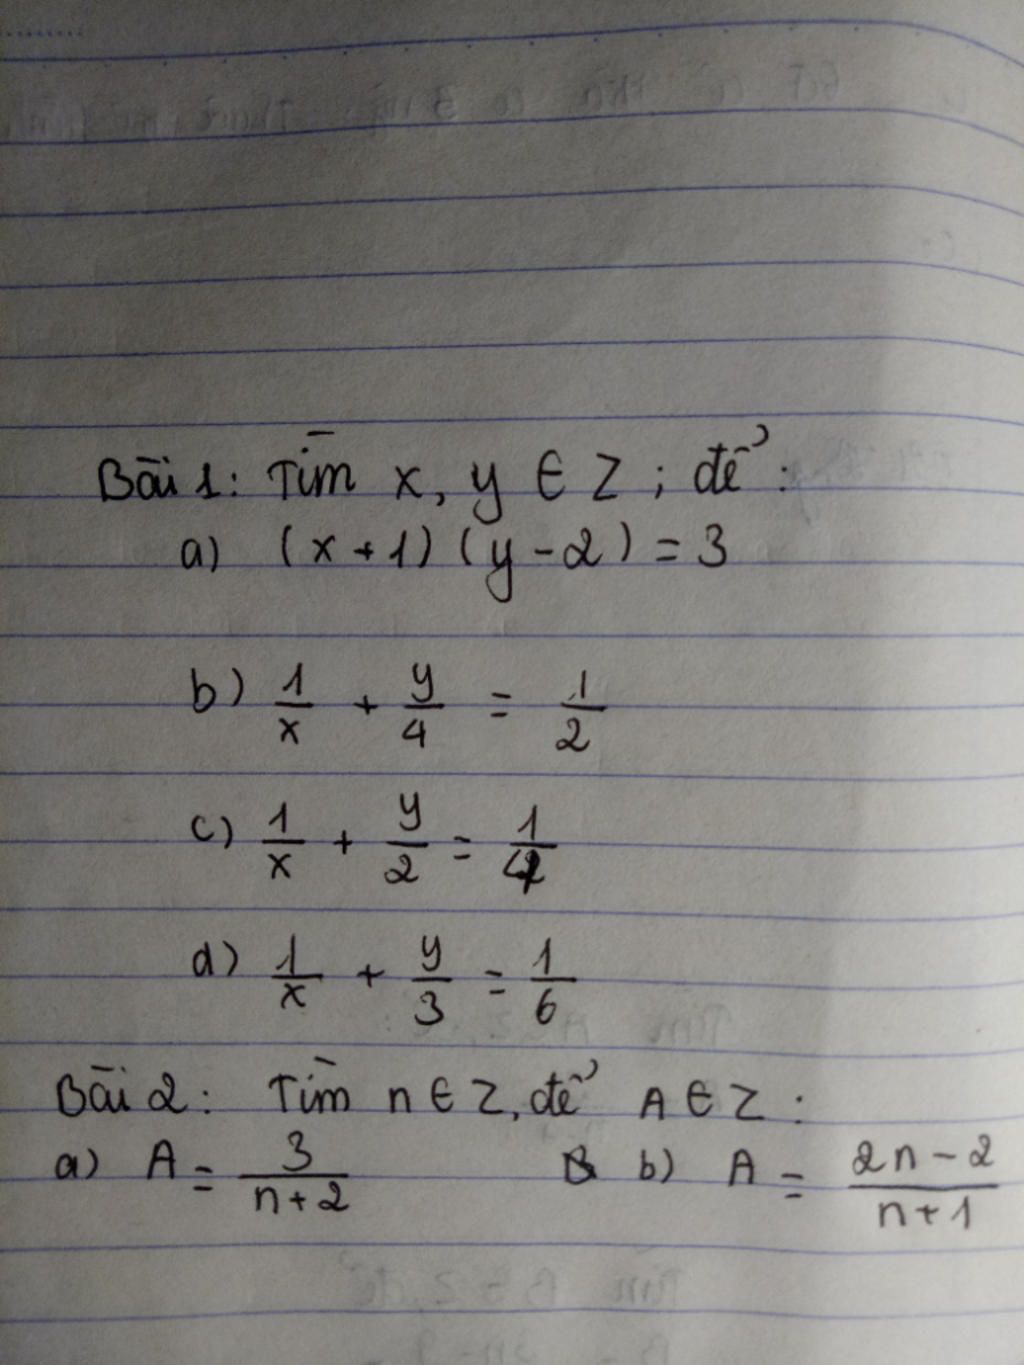 Bài 1: Tìm x, y ∈ Z ; để :
a) (x + 1) (y - 2) = 3
b) 1/x + y/4 = 1/2
c) 1/x + y/2 = 1/4
d) 1/x + y/3 = 1/6
Bài 2: Tìm n ∈ Z, để A ∈ Z :
a) A = 3/(n+2) b) A = (2n-2)/(n+1)